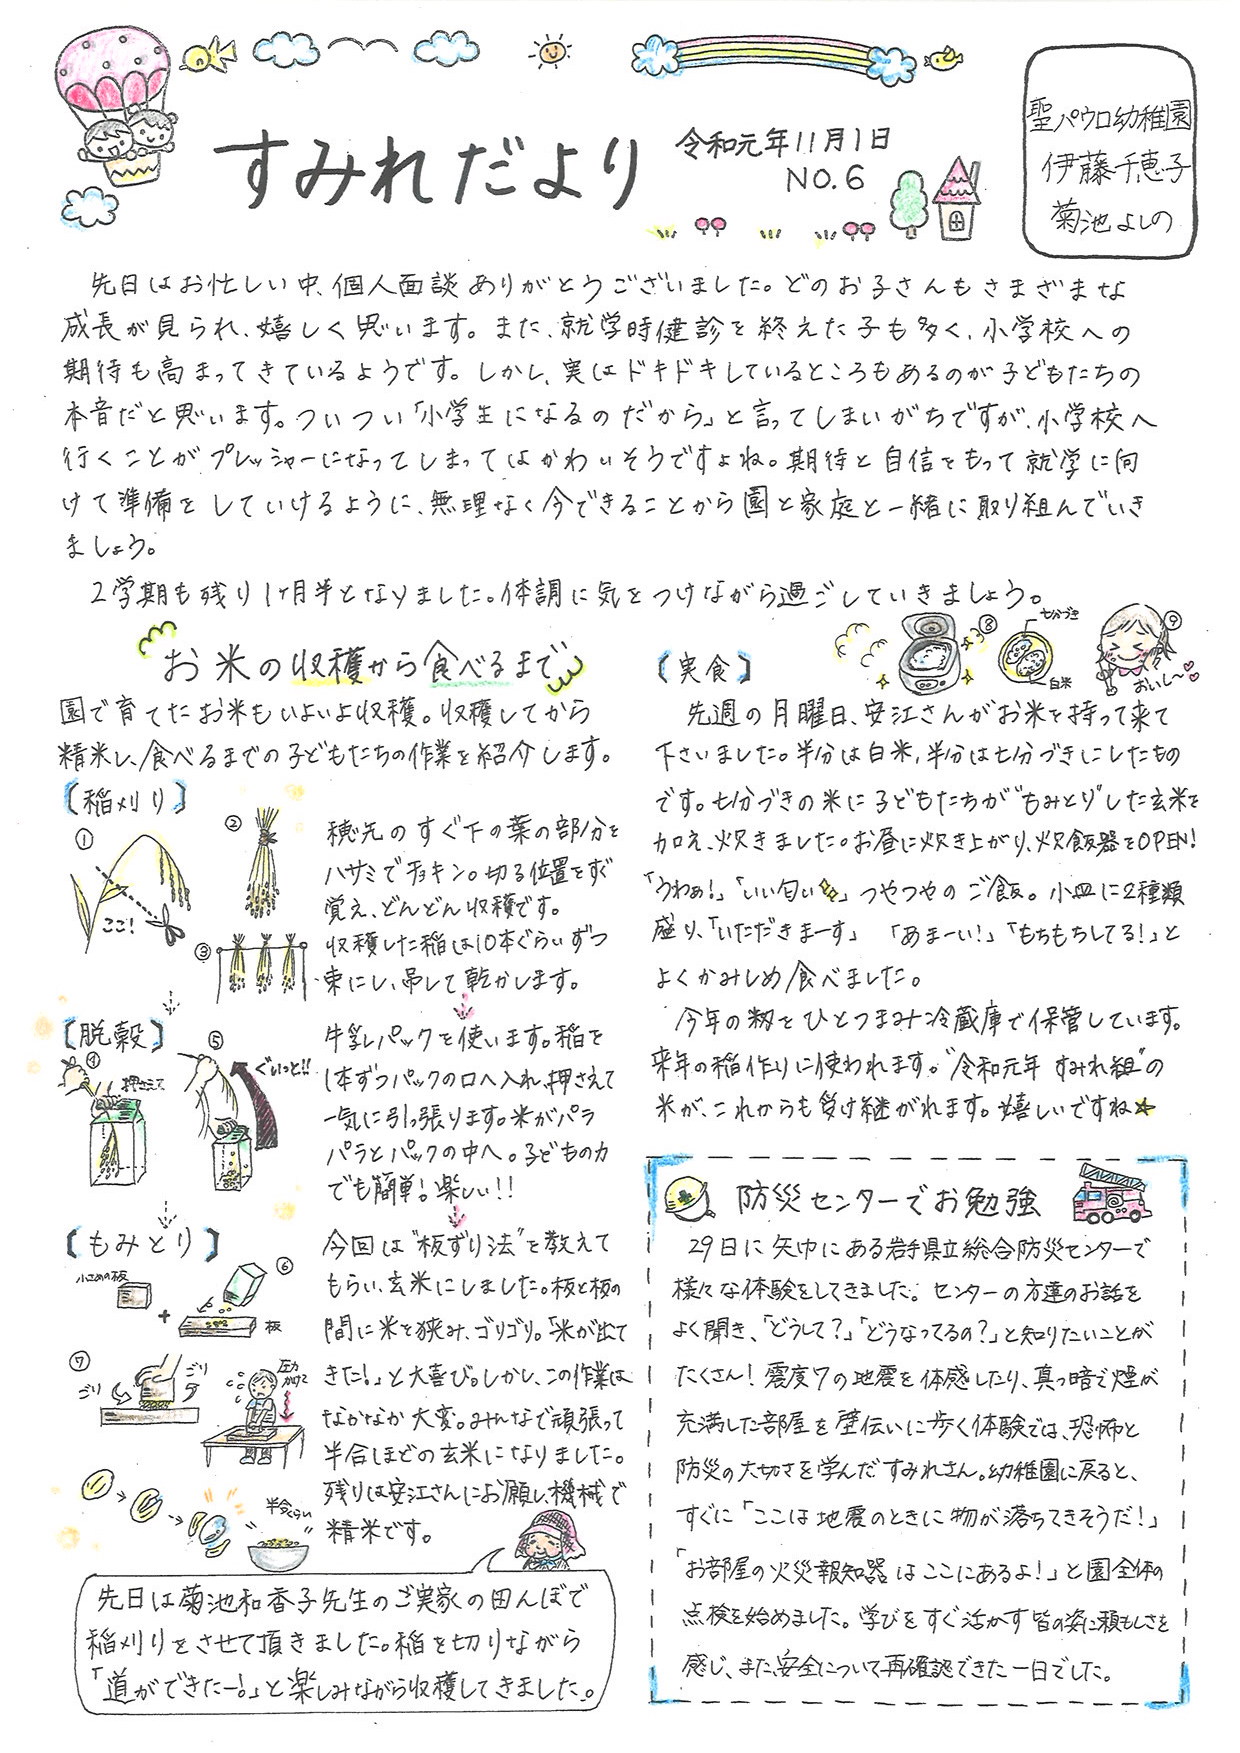 すみれだより
令和元年11月1日
NO.6
聖パウロ幼稚園
伊藤千恵子
菊池よしの
先日はお忙しい中、個人面談ありがとうございました。どのお子さんもさまざまな
成長が見られ、嬉しく思います。また、就学時健診を終えた子も多く、小学校への
期待も高まってきているようです。しかし、実はドキドキしているところもあるのが子どもたちの
本音だと思います。ついつい「小学生になるのだから」と言ってしまいがちですが、小学校へ
行くことがプレッシャーになってしまってはかわいそうですよね。期待と自信をもって就学に向
けて準備をしていけるように、無理なく今できることから園と家庭と一緒に取り組んでいき
ましょう。
2学期も残り1ヶ月半となりました。体調に気をつけながら過ごしていきましょう。
お米の収穫から食べるまで
園で育てたお米もいよいよ収穫。収穫してから
精米し、食べるまでの子どもたちの作業を紹介します。
【稲刈り】
①
ここ!
②
③
穂先のすぐ下の葉の部分を
ハサミでチョキン。切る位置をすぐ
覚え、どんどん収穫です。
収穫した稲は10本ぐらいずつ
束にし、吊して乾かします。
【脱穀】
④
押さえて
⑤
ぐいっと!!
牛乳パックを使います。稲を
1本ずつパックの口へ入れ、押さえて
一気に引っ張ります。米がパラ
パラとパックの中へ。子どもの力
でも簡単!楽しい!!
【もみとり】
小さめの板
+
⑥
板
⑦
ゴリ
ゴリ
圧力
かけて
半合くらい
今回は"板ずり法"を教えて
もらい、玄米にしました。板と板の
間に米を挟み、ゴリゴリ。「米が出て
きた!」と大喜び。しかし、この作業は
なかなか大変。みんなで頑張って
半合ほどの玄米になりました。
残りは安江さんにお願いし、機械で
精米です。
先日は菊池和香子先生のご実家の田んぼで
稲刈りをさせて頂きました。稲を切りながら
「道ができたー!」と楽しみながら収穫してきました。
【実食】
⑧
七分づき
白米
⑨
おいし〜
先週の月曜日、安江さんがお米を持って来て
下さいました。半分は白米,半分は七分づきにしたもの
です。七分づきの米に子どもたちが"もみとり"した玄米を
加え、炊きました。お昼に炊き上がり、炊飯器をOPEN!
「うわぁ!」「いい匂い」つやつやのご飯。小皿に2種類
盛り、「いただきまーす」「あまーい!」「もちもちしてる!」と
よくかみしめ食べました。
今年の籾をひとつまみ冷蔵庫で保管しています。
来年の稲作りに使われます。"令和元年 すみれ組"の
米が、これからも受け継がれます。嬉しいですね☆
防災センターでお勉強
29日に矢巾にある岩手県立総合防災センターで
様々な体験をしてきました。センターの方達のお話を
よく聞き、「どうして?」「どうなってるの?」と知りたいことが
たくさん!震度7の地震を体感したり、真っ暗で煙が
充満した部屋を壁伝いに歩く体験では、恐怖と
防災の大切さを学んだすみれさん。幼稚園に戻ると、
すぐに「ここは地震のときに物が落ちてきそうだ!」
「お部屋の火災報知器はここにあるよ!」と園全体の
点検を始めました。学びをすぐ活かす皆の姿に頼もしさを
感じ、また、安全について再確認できた一日でした。